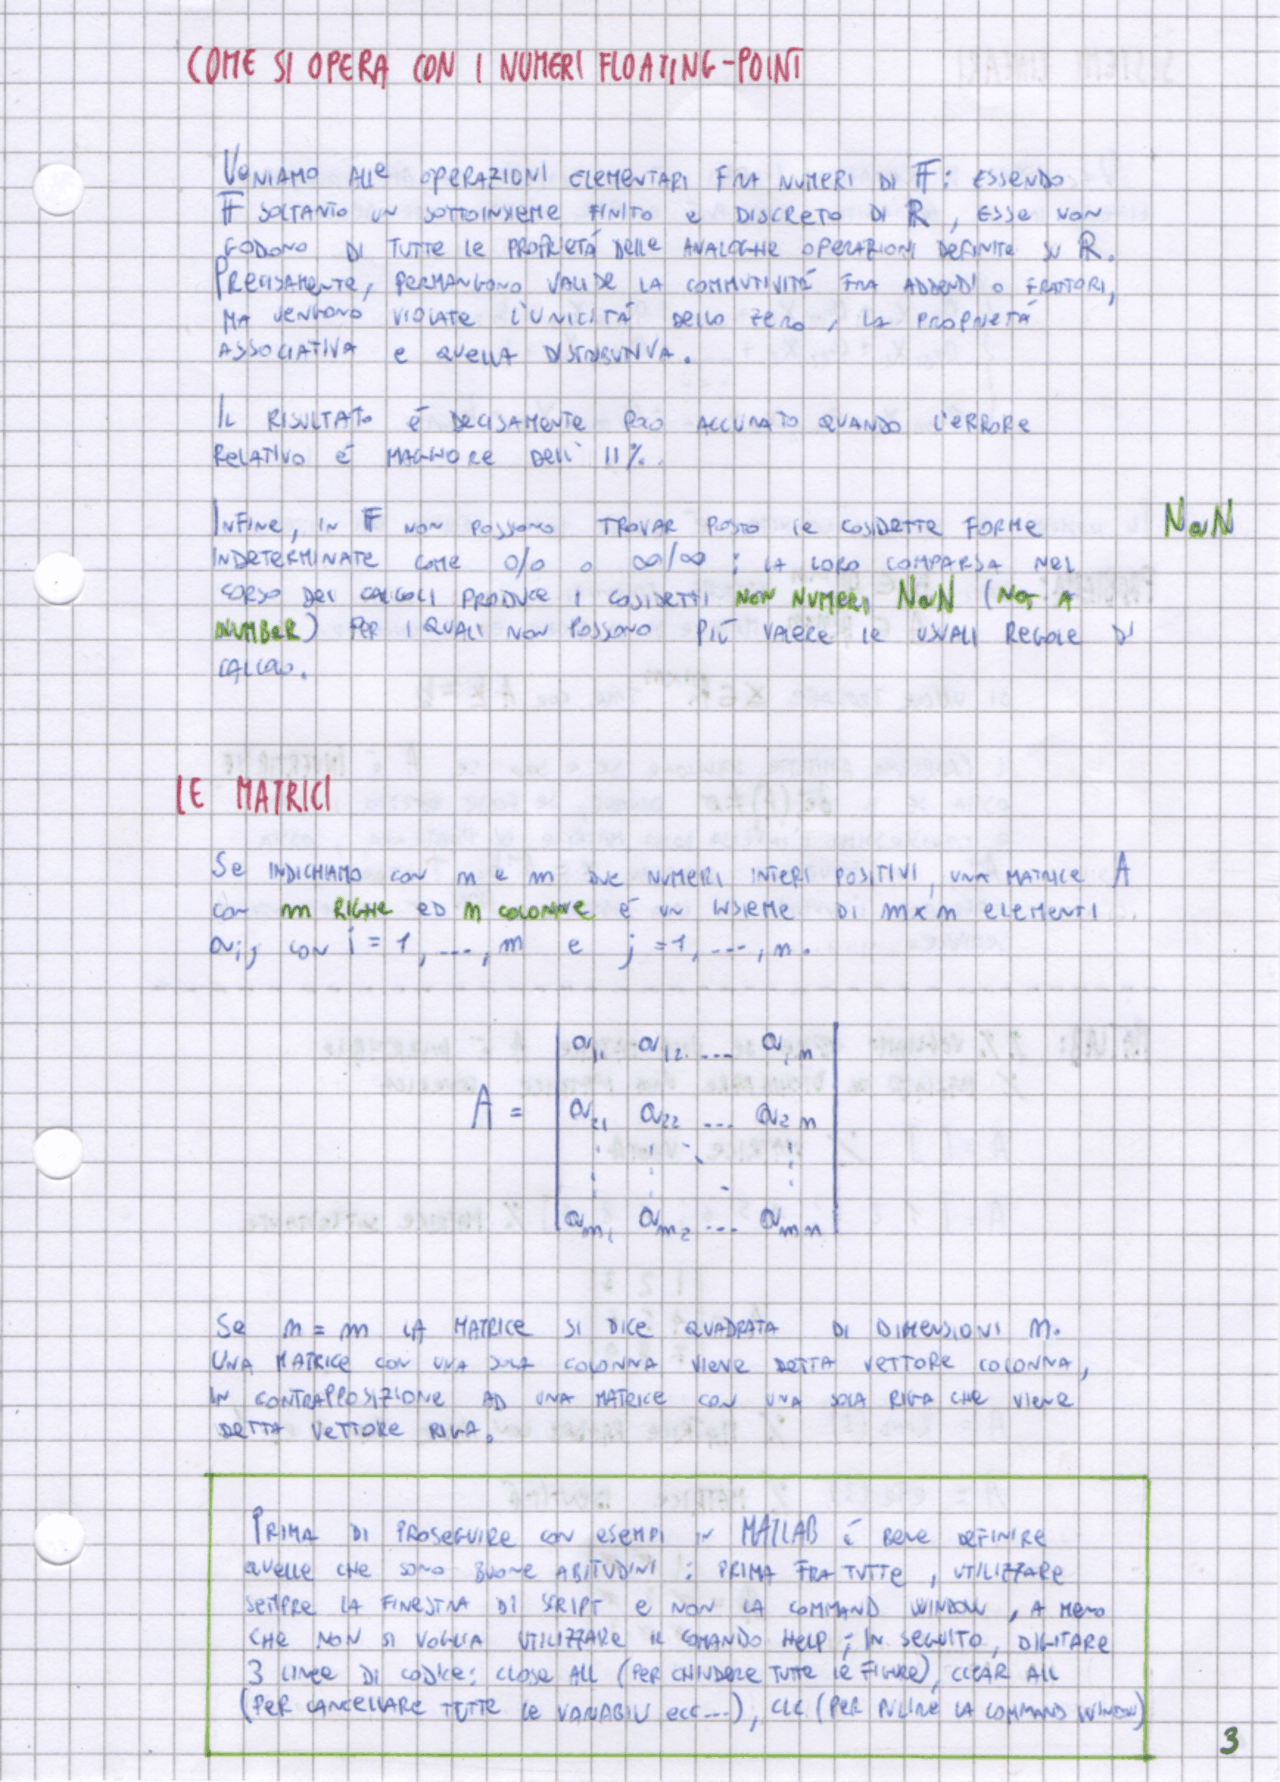 COME SI OPERA CON I NUMERI FLOATING-POINT
VENIAMO ALLE OPERAZIONI ELEMENTARI FRA NUMERI DI 𝔽: ESSENDO
𝔽 SOLTANTO UN SOTTOINSIEME FINITO E DISCRETO DI ℝ, ESSE NON
GODONO DI TUTTE LE PROPRIETÁ DELLE ANALOGHE OPERAZIONI DEFINITE SU ℝ.
PRECISAMENTE, PERMANGONO VALIDE LA COMMUTIVITÁ FRA ADDENDI O FRATTORI,
MA VENGONO VIOLATE L'UNICITÁ DELLO ZERO, LA PROPRIETÁ
ASSOCIATIVA E QUELLA DISTRIBUTIVA.
IL RISULTATO É DECISAMENTE POCO ACCURATO QUANDO L'ERRORE
RELATIVO É MAGGIORE DELL' 11%.
INFINE, IN 𝔽 NON POSSONO TROVAR POSTO LE COSIDETTE FORME
NaN
INDETERMINATE COME 0/0 O ∞/∞ ; LA LORO COMPARSA NEL
CORSO DEI CALCOLI PRODUCE I COSIDETTI NON NUMERI, NaN (NOT A
NUMBER) PER I QUALI NON POSSONO PIÚ VALERE LE USUALI REGOLE DI
CALCOLO.
LE MATRICI
SE INDICHIAMO CON m E n DUE NUMERI INTERI POSITIVI, UNA MATRICE A
CON m RIGHE ED n COLONNE É UN INSIEME DI m×n ELEMENTI
aij CON i = 1, ..., m E j = 1, ..., n.
a11 a12 ... a1n
A = a21 a22 ... a2n
am1 am2 ... amn
SE m = n LA MATRICE SI DICE QUADRATA DI DIMENSIONI n.
UNA MATRICE CON UNA SOLA COLONNA VIENE DETTA VETTORE COLONNA,
IN CONTRAPPOSIZIONE AD UNA MATRICE CON UNA SOLA RIGA CHE VIENE
DETTA VETTORE RIGA.
PRIMA DI PROSEGUIRE CON ESEMPI IN MATLAB É BENE DEFINIRE
QUELLE CHE SONO BUONE ABITUDINI : PRIMA FRA TUTTE, UTILIZZARE
SEMPRE LA FINESTRA DI SCRIPT E NON LA COMMAND WINDOW, A MENO
CHE NON SI VOGLIA UTILIZZARE IL COMANDO HELP ; IN SEGUITO, DIGITARE
3 LINEE DI CODICE: CLOSE ALL (PER CHIUDERE TUTTE LE FIGURE), CLEAR ALL
(PER CANCELLARE TUTTE LE VARIABILI ECC...), CLC (PER PULIRE LA COMMAND WINDOW)
3